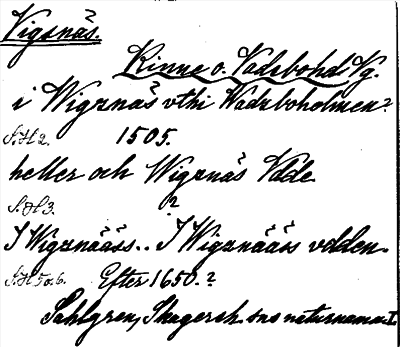 Vigsnäs.
Kinne o. Vadsbohds Vg.
i Wigznäs vthi Wadzboholmen?
S.H 2. 1505.
heller och Wigznäs Vdde
S.H 3. ?
I Wigznääss.. I Wigznääss vdden.
S.H 5 o. 6. Efter 1650.?
Sahlgren, Skagersh. sns naturnamn I.